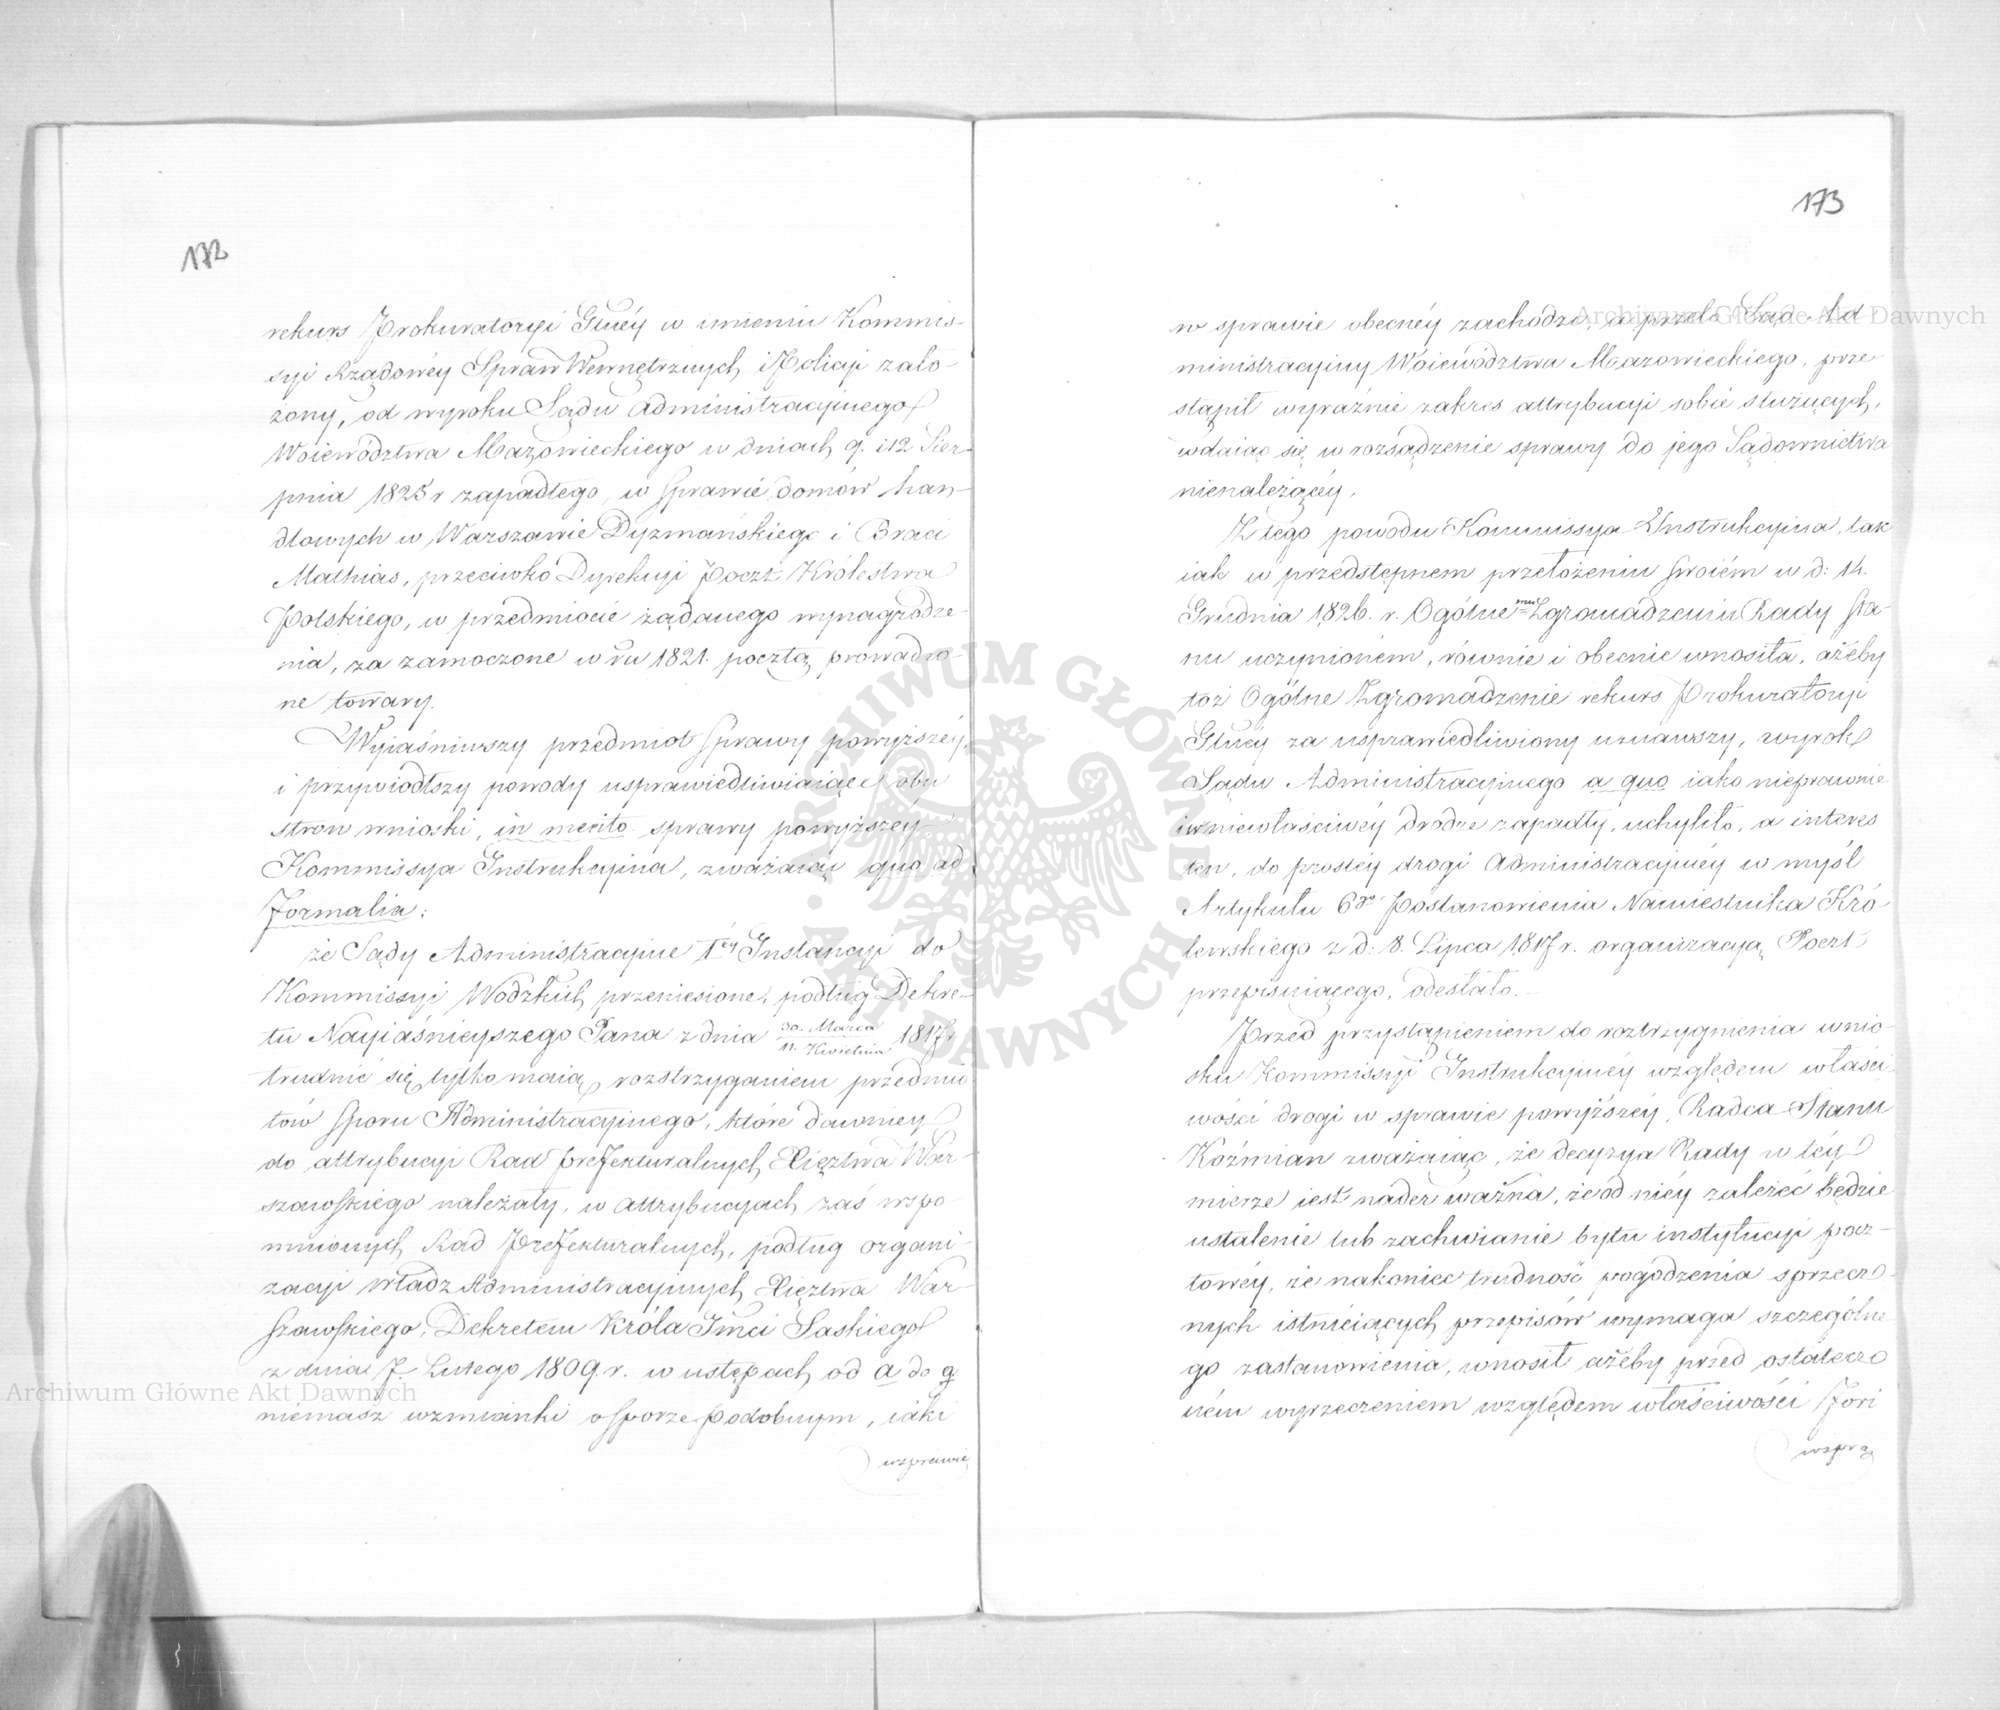 172
rekurs Prokuratoryi Głnéy w imieniu Kommis-
syi Rządowéy Spraw Wewnętrznych i Policyi zało-
żony, od wyroku Sądu Administracyinego
Woiewództwa Mazowieckiego w dniach 9. i 12 Sier-
pnia 1825 r zapadłego, w sprawie domów han-
dlowych w Warszawie Dyzmańskiego i Braci
Mathias, przeciwko Dyrekcyi Poczt Królestwa
Polskiego, w przedmiocie żądanego wynagrodze-
nia, za zamoczone w ru 1821. pocztą prowadzo-
ne towary.
Wyiaśniwszy przedmiot sprawy powyższéy,
i przywiódłszy powody usprawiedliwiaiące obu
stron wnioski, in merito sprawy powyższey
Kommissya Instrukcyina, zważaiąc quo ad
Formalia:
że Sądy Administracyine Iéy Instancyi do
Kommissyi Wodzkich przeniesione, podług Dekre-
tu Nayiaśnieyszego Pana z dnia 30. Marca / 11. Kwietnia 1817 r
trudnić się tylko maią rozstrzyganiem przedmio
tów sporu Administracyinego, które dawniey
do attrybucyi Rad prefekturalnych Xięztwa War-
szawskiego należały, w attrybucyach zaś wspo-
mnionych Rad Prefekturalnych, podług organi-
zacyi Władz Administracyinych Xięztwa War-
szawskiego, Dekretem Króla Jmci Saskiego
z dnia 7. Lutego 1809. r. w ustępach od a do g
niemasz wzmianki o sporze podobnym, iaki
w sprawie
173
w sprawie obecnéy zachodzi, a przeto Sąd Ad-
ministracyiny Woiewództwa Mazowieckiego, prze-
stąpił wyraźnie zakres attrybucyi sobie służących,
wdaiąc się w rozsądzenie sprawy do jego Sądownictwa
nienależącéy.
Z tego powodu Kommissya Instrukcyina, tak
iak w przedstępnem przełożeniu swoiém w d: 14.
Grudnia 1826. r. Ogólnemu Zgromadzeniu Rady Sta-
nu uczynioném, równie i obecnie wnosiła, ażeby
toż Ogólne Zgromadzenie rekurs Prokuratoryi
Głnéy za usprawiedliwiony uznawszy, wyrok
Sądu Administracyinego a quo iako nieprawnie
i w niewłaściwéy drodze zapadły, uchyliło, a interes
ten, do prostéy drogi Administracyinéy w myśl
Artykułu 6go Postanowienia Namiestnika Kró-
lewskiego z d: 8. Lipca 1817 r. organizacyą Poczt
przepisuiącego, odesłało.
Przed przystąpieniem do roztrzygnienia wnio-
sku Kommissyi Instrukcyinéy względem właści-
wości drogi w sprawie powyższéy, Radca Stanu
Koźmian zważaiąc, że decyzya Rady w téy
mierze iest nader ważna, że od niéy zależeć będzie
ustalenie lub zachwianie bytu instytucyi pocz-
towéy, że nakoniec trudność pogodzenia sprzecz-
nych istnieiących przepisów wymaga szczególne-
go zastanowienia, wnosił ażeby przed ostatecz-
ném wyrzeczeniem względem właściwości Fori
w spra
Archiwum Główne Akt Dawnych
Archiwum Główne Akt Dawnych
ARCHIWUM GŁÓWNE AKT DAWNYCH